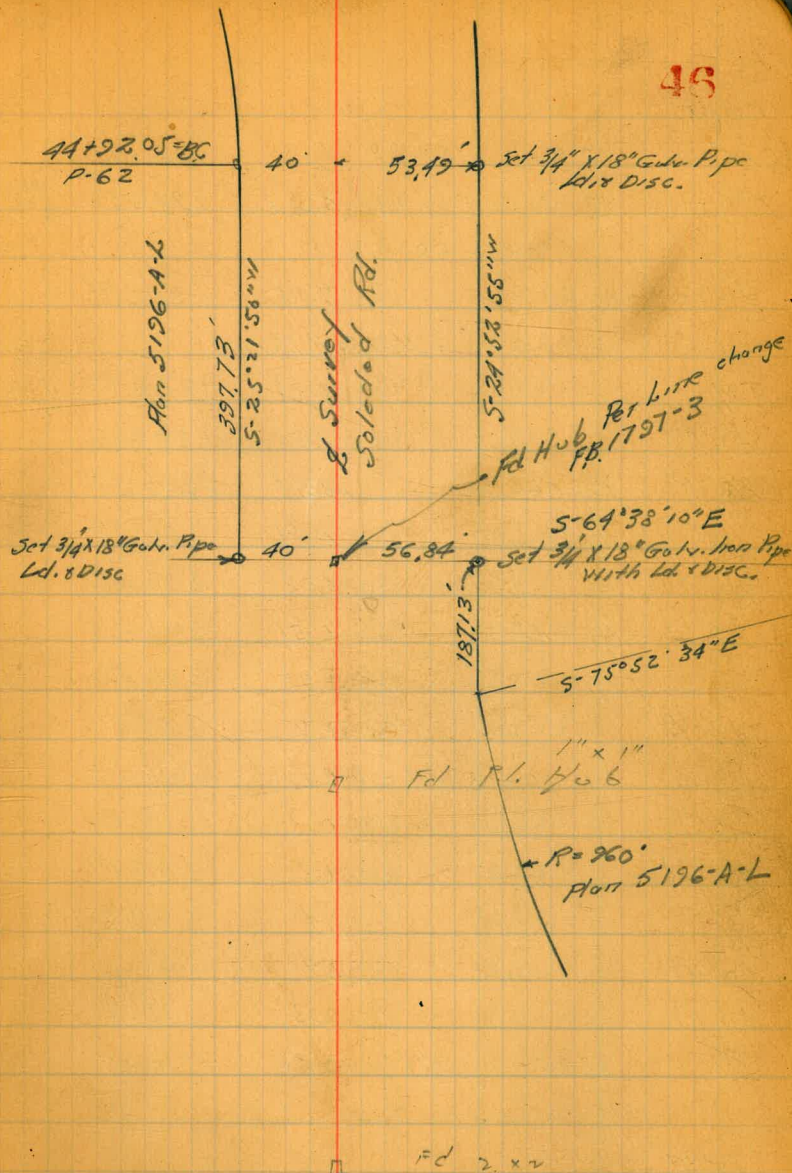 46
44+92.05=BC
P-62
40'
53.49'
Set 3/4" X 18" Galv. Pipe
Ld. & Disc.
Plan 5196-A-L
397.73'
S-25°21'50"W
℄ Survey
Soledad Rd.
S-24°52'55"W
Fd Hub Per Line change
F.B. 1797-3
S-64°38'10"E
Set 3/4 X 18" Galv. Pipe
Ld. & Disc
40'
56.84'
Set 3/4 X 18" Galv. Iron Pipe
With Ld. & Disc.
187.13'
S-75°52'34"E
1" x 1"
Fd P.I. Hub
R=960'
Plan 5196-A-L
Fd 2 x 2